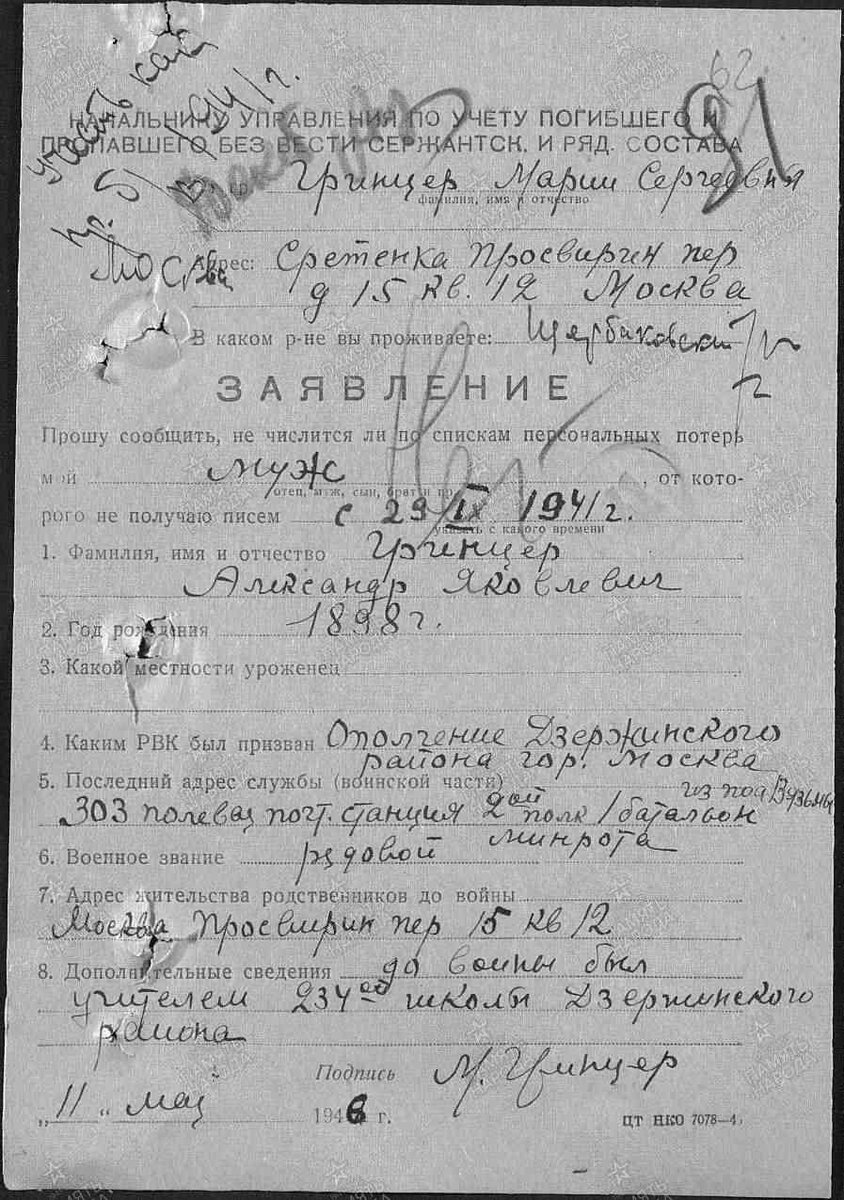 62
91
учесть
1941 г.
НАЧАЛЬНИКУ УПРАВЛЕНИЯ ПО УЧЕТУ ПОГИБШЕГО И
ПРОПАВШЕГО БЕЗ ВЕСТИ СЕРЖАНТСК. И РЯД. СОСТАВА
Гринцер Марии Сергеевня
фамилия, имя и отчество
Москва
Адрес: Сретенка Просвирин пер
д 15 кв. 12 Москва
В каком р-не вы проживаете: Щербаковский
ЗАЯВЛЕНИЕ
Прошу сообщить, не числится ли по спискам персональных потерь
мой муж , от кото-
отец, муж, сын, брат и пр.
рого не получаю писем с 29 IX 1941 г.
указать с какого времени
1. Фамилия, имя и отчество Гринцер
Александр Яковлевич
2. Год рождения 1898 г.
3. Какой местности уроженец
4. Каким РВК был призван Ополчение Дзержинского
района гор. Москва
5. Последний адрес службы (воинской части) из под Вязьмы
303 полевая почт. станция 2ой полк 1 батальон
минрота
6. Военное звание рядовой
7. Адрес жительства родственников до войны
Москва Просвирин пер 15 кв 12
8. Дополнительные сведения до войны был
учителем 234ой школы Дзержинского
района
Подпись М. Гринцер
„11" мая 1946 г.
ЦТ НКО 7078—4